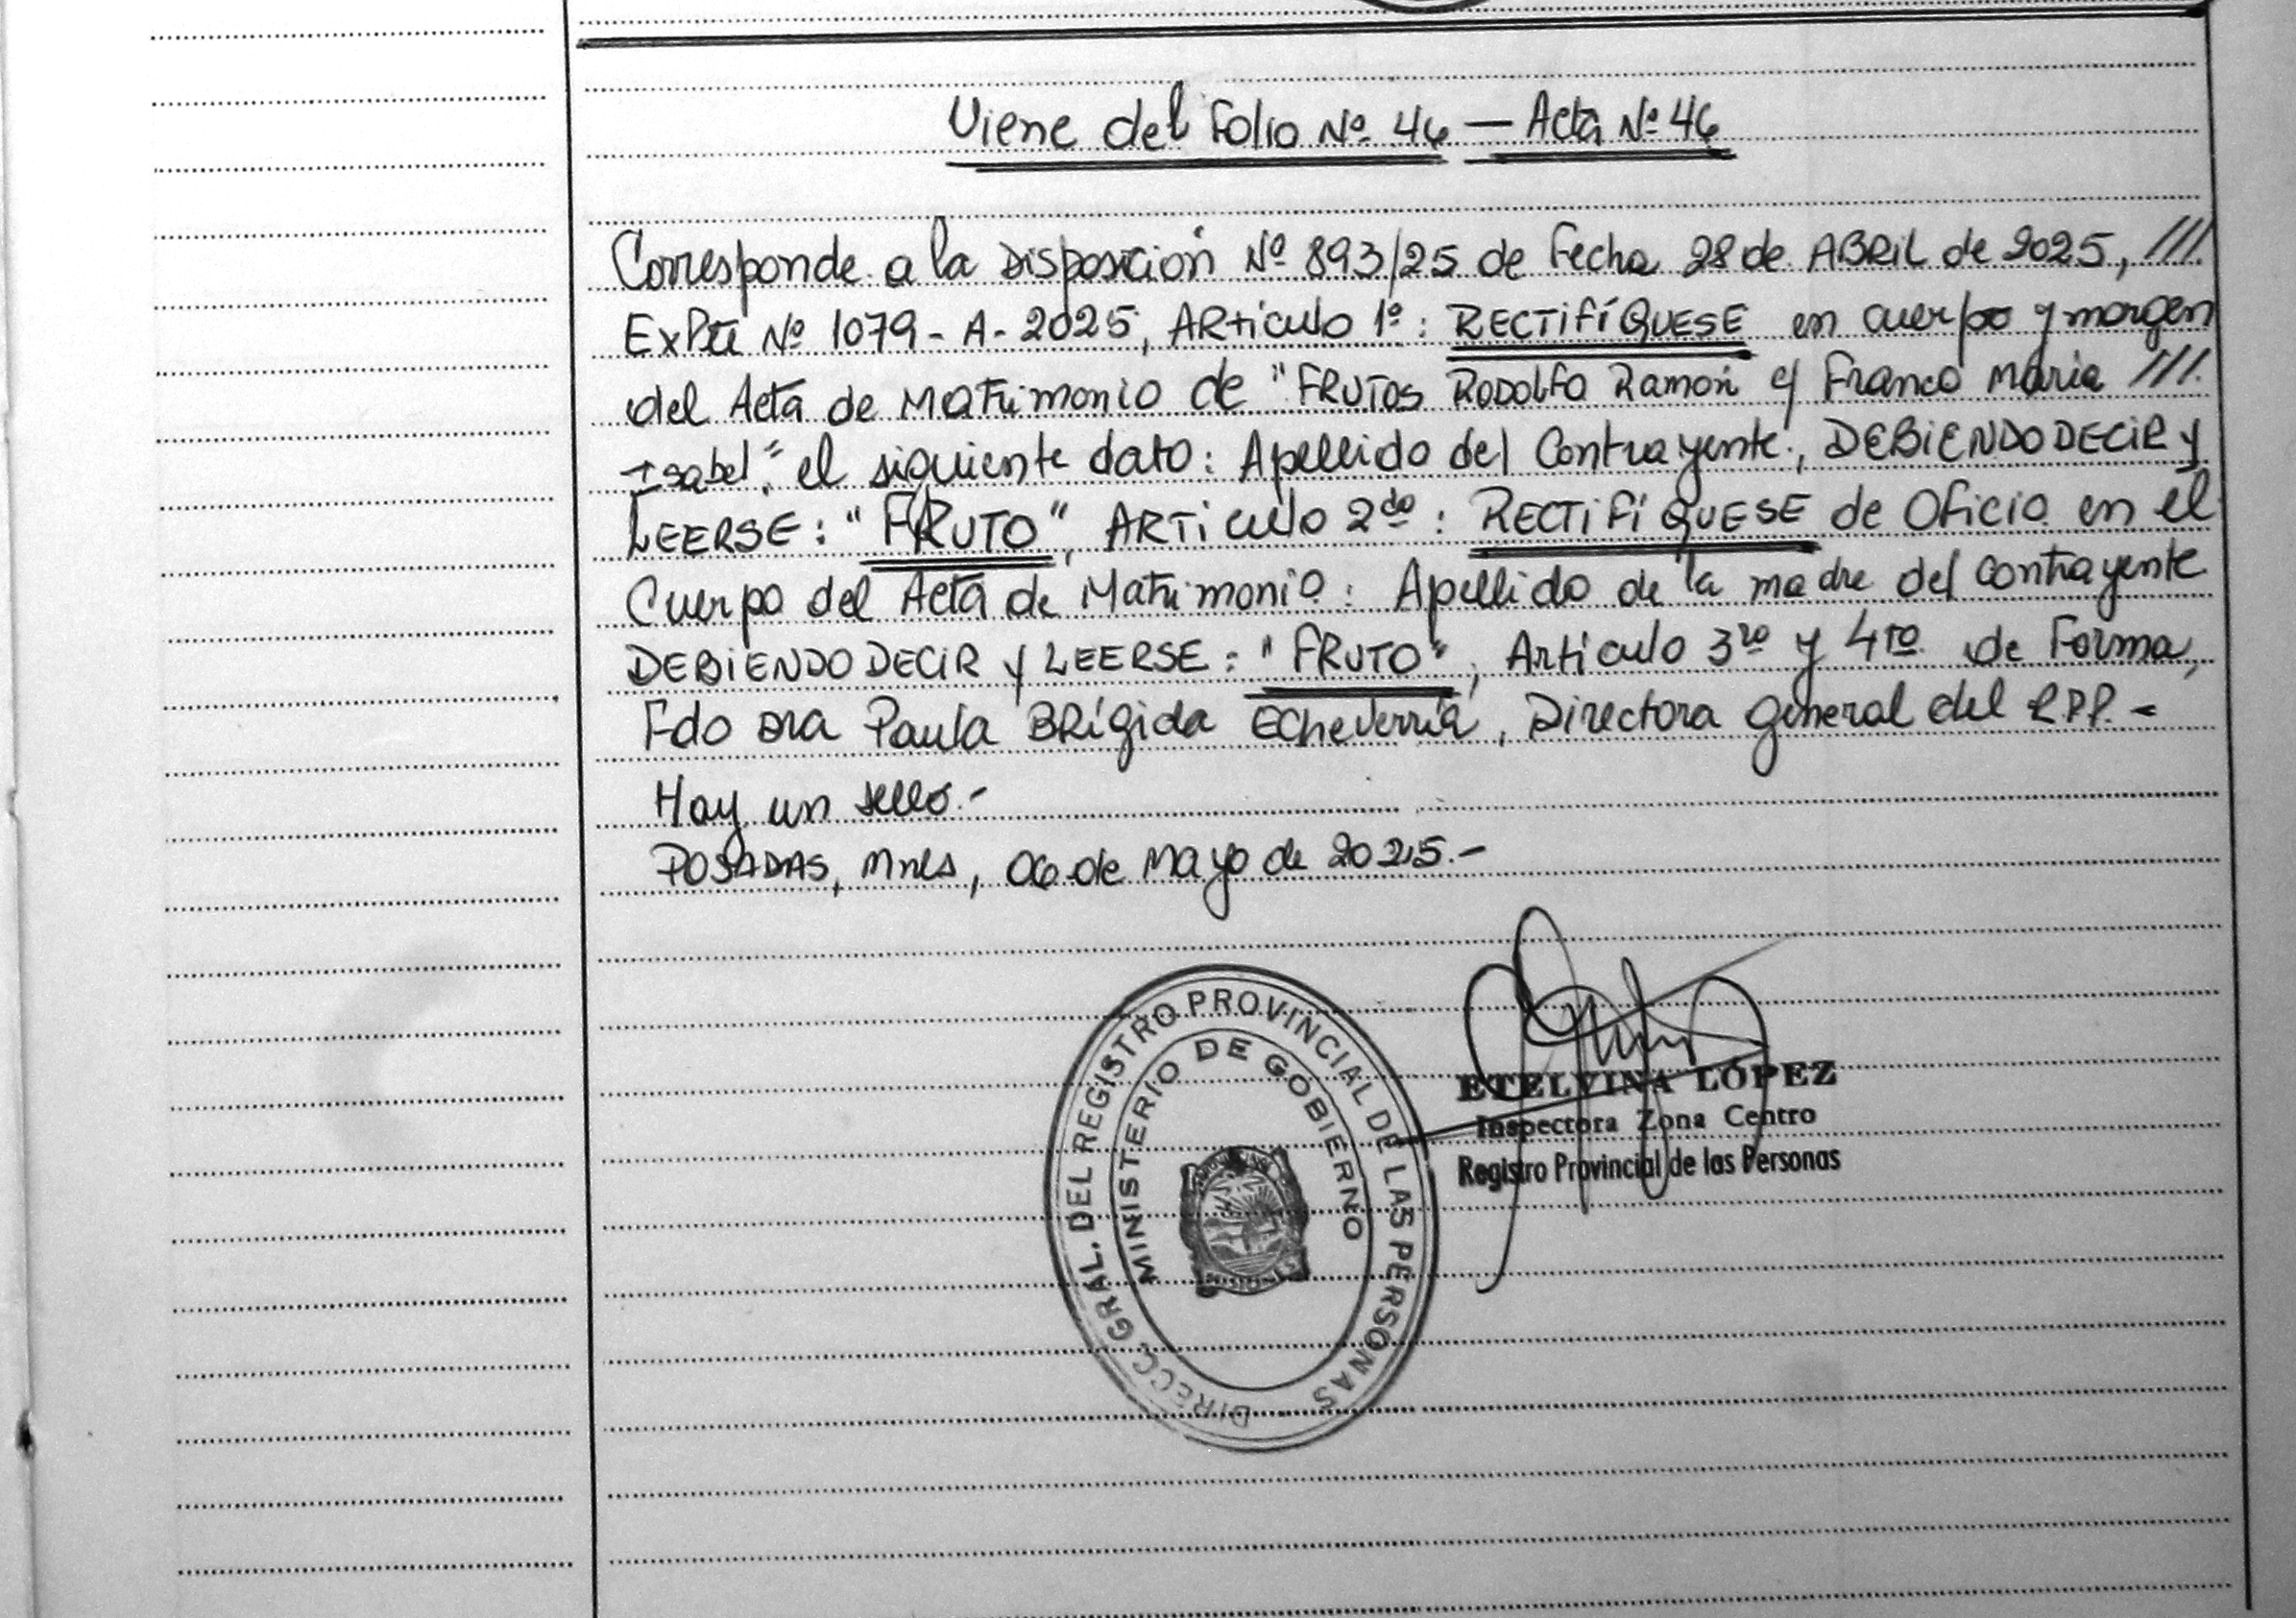 Viene del Folio Nº 46 — Acta Nº 46
Corresponde a la Disposición Nº 893/25 de Fecha 28 de ABRIL de 2025, ///
ExPte Nº 1079-A-2025, ARticulo 1º: RECTIFÍQUESE en cuerpo y margen
del Acta de Matrimonio de "FRUTOS RODOLFO Ramón c/ Franco Maria ///
Isabel", el siguiente dato: Apellido del Contrayente, DEBIENDO DECIR y
LEERSE: "FRUTO", ARTiculo 2do: RECTIFÍQUESE de Oficio en el
Cuerpo del Acta de Matrimonio: Apellido de la madre del contrayente
DEBIENDO DECIR y LEERSE: "FRUTO", Artículo 3ro y 4to de Forma,
Fdo Dra Paula BRígida Echeverría, Directora General del RPP.-
Hay un sello.-
POSADAS, Mnes, 06 de Mayo de 2025.-
DIRECC. GRAL. DEL REGISTRO PROVINCIAL DE LAS PERSONAS
MINISTERIO DE GOBIERNO
MISIONES
ETELVINA LÓPEZ
Inspectora Zona Centro
Registro Provincial de las Personas